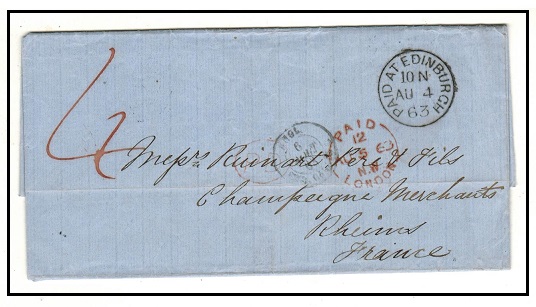 PAID AT EDINBURGH
10 N
AU 4
63
4
PAID
12
5 63
N.W
LONDON
6
Messrs. Ruinart Père & Fils
Champaigne Merchants
Rheims
France